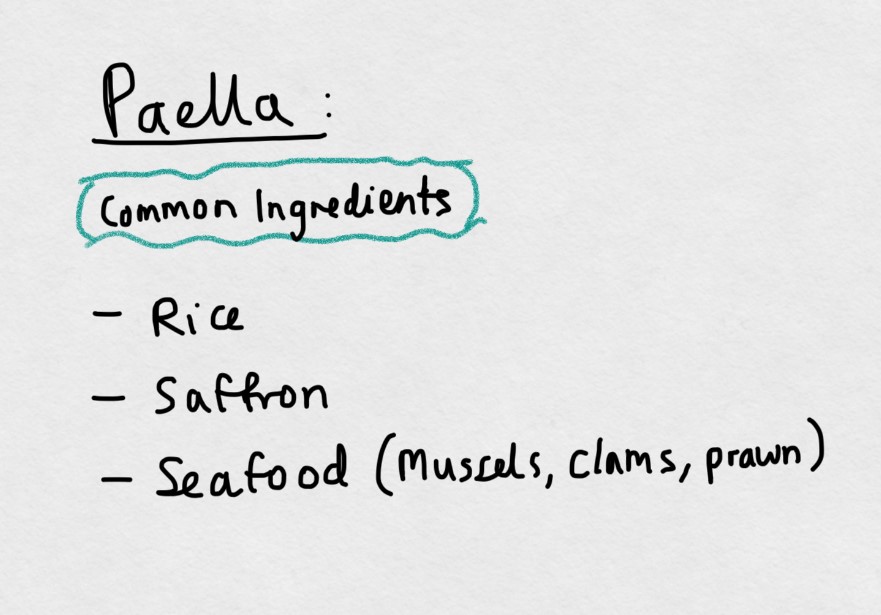 Paella:
Common Ingredients
- Rice
- Saffron
- Seafood (Mussels, clams, prawn)